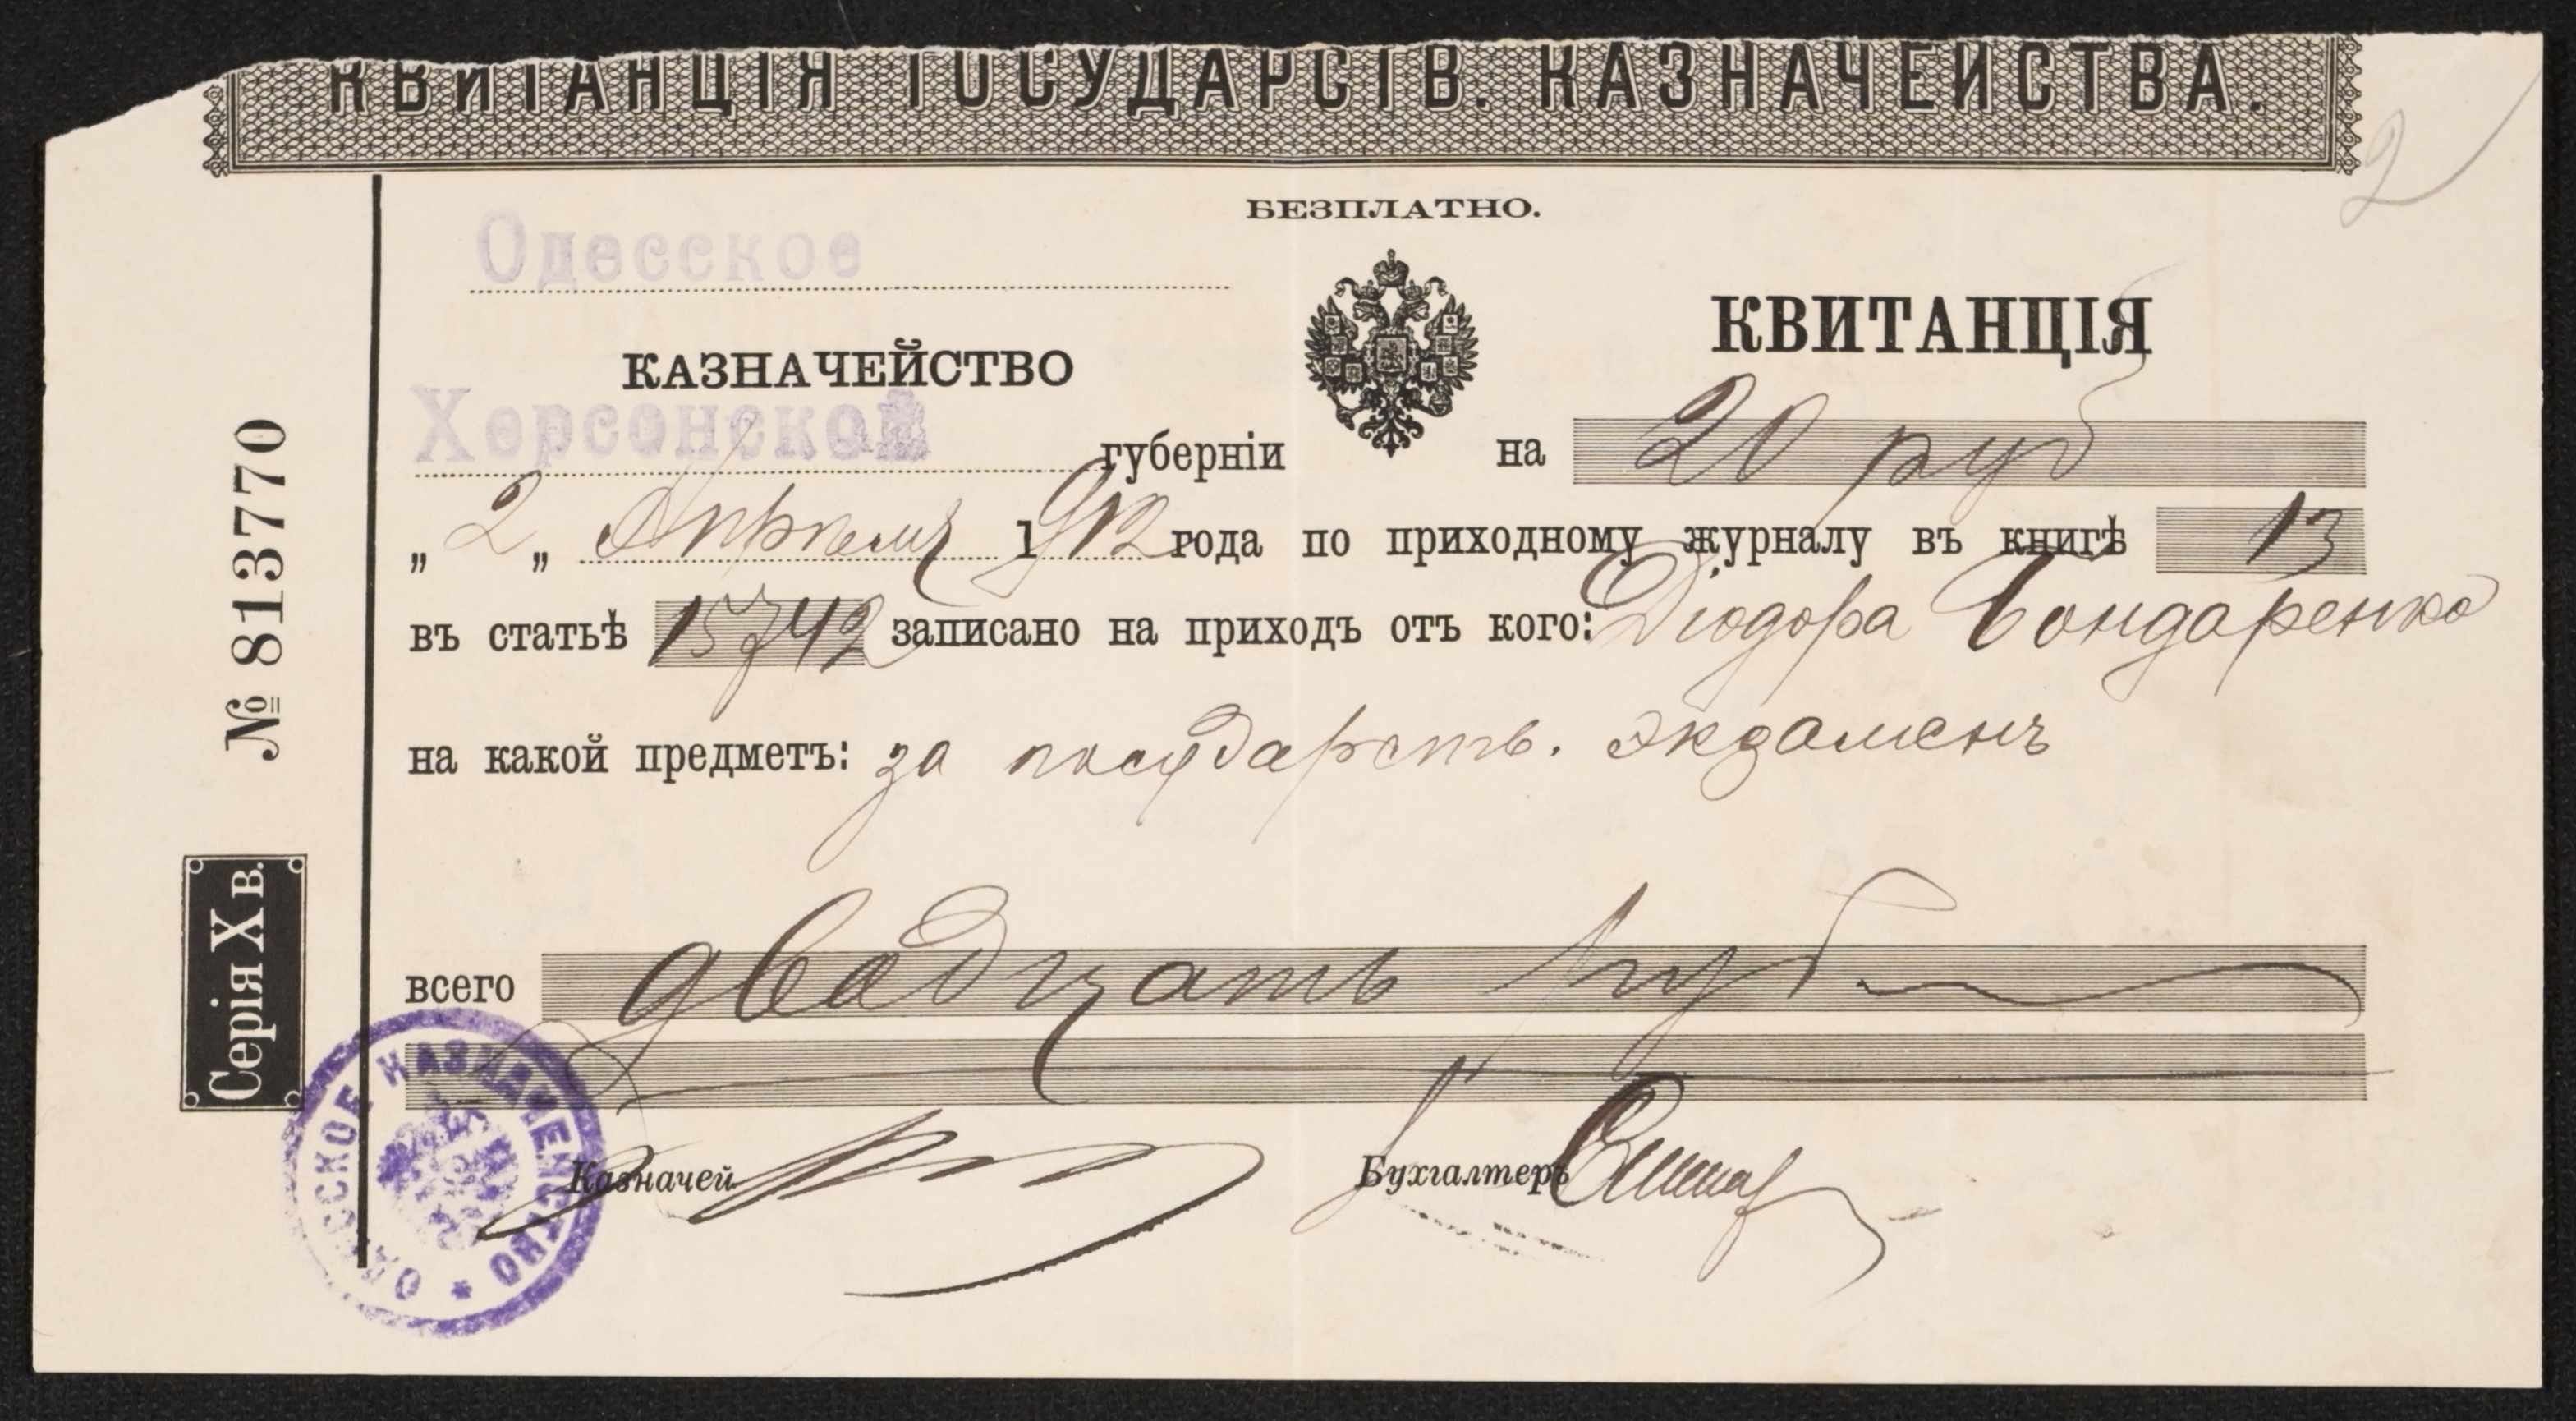 КВИТАНЦІЯ ГОСУДАРСТВ. КАЗНАЧЕЙСТВА.
2
БЕЗПЛАТНО.
Одесское
КАЗНАЧЕЙСТВО
Херсонской губерніи
КВИТАНЦІЯ
на 20 руб
„ 2 „ Апреля 1912 года по приходному журналу въ книгѣ 13
въ статьѣ 15742 записано на приходъ отъ кого: Діодора Бондаренко
на какой предметъ: за государств. экзаменъ
всего двадцать руб
Казначей
Бухгалтеръ
№ 813770
Серія X в.
ОДЕССКОЕ КАЗНАЧЕЙСТВО *